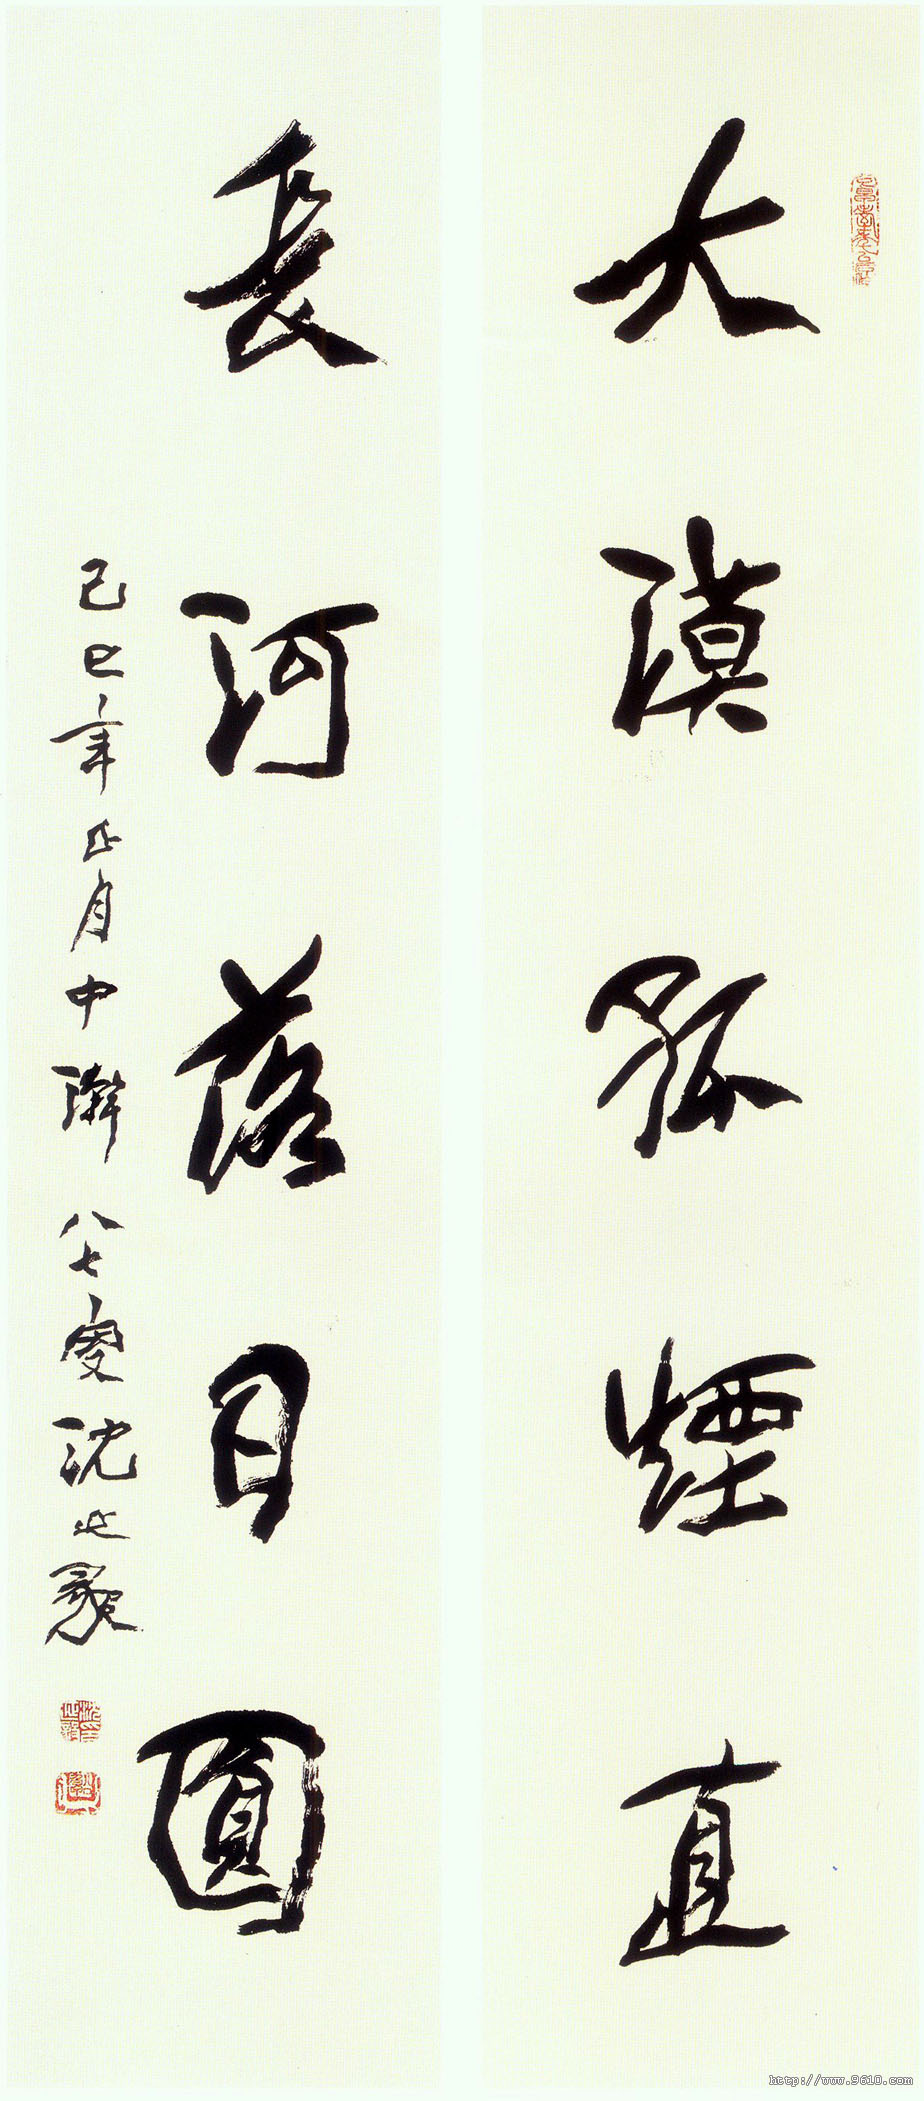 大漠孤煙直
長河落日圓
己巳年正月中澣八七叟沈延毅
http://www.9610.com